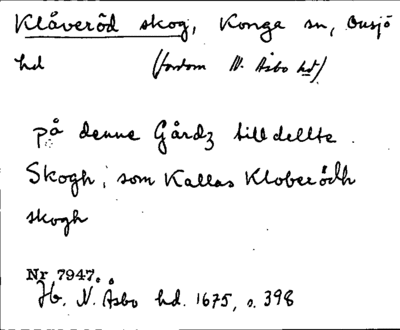 Klåveröd skog, Konga sn, Onsjö
hd (fordom N. Åsbo hd)
på denne Gårdz tilldellte
Skogh, som Kallas Kloberödh
skogh
Nr 7947.
Jb. N. Åsbo hd. 1675, s. 398